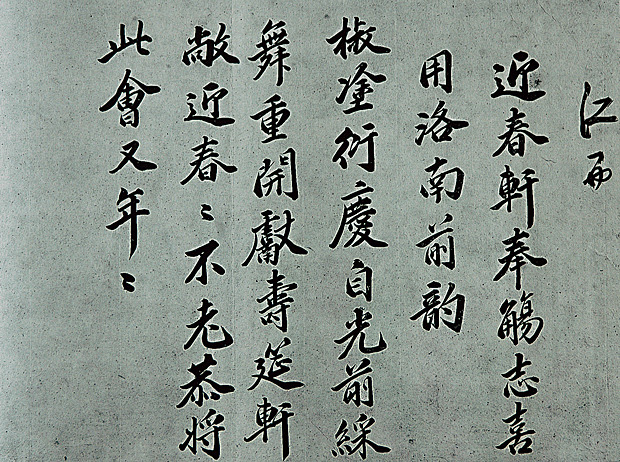 江
近春軒奉觴志喜
用洛南前韵
椒塗衍慶自光前綵
舞重開獻壽筵軒
敞近春〻不老恭将
此會又年〻